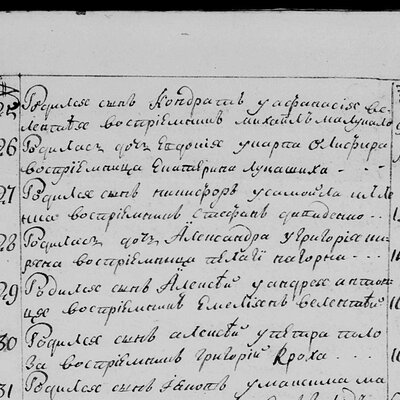 25 Родился сынъ Кондратъ у афанасія ве
лентѣя воспріемникъ михаилъ малукало
26 Родилась дочь Евдокія у карпа
воспріемница Екатерина лукашиха
27 Родился сынъ никифоръ у самойла
воспріемникъ Стефанъ
28 Родилась дочь Александра у григорія
воспріемница пелагія нагорна
29 Родился сынъ Алексѣй у андрея антон
воспріемникъ Емеліянъ велентѣй
30 Родился сынъ алексѣй у петра поло
за воспріемникъ григорій Кроха
31 Родился сынъ у максима ма